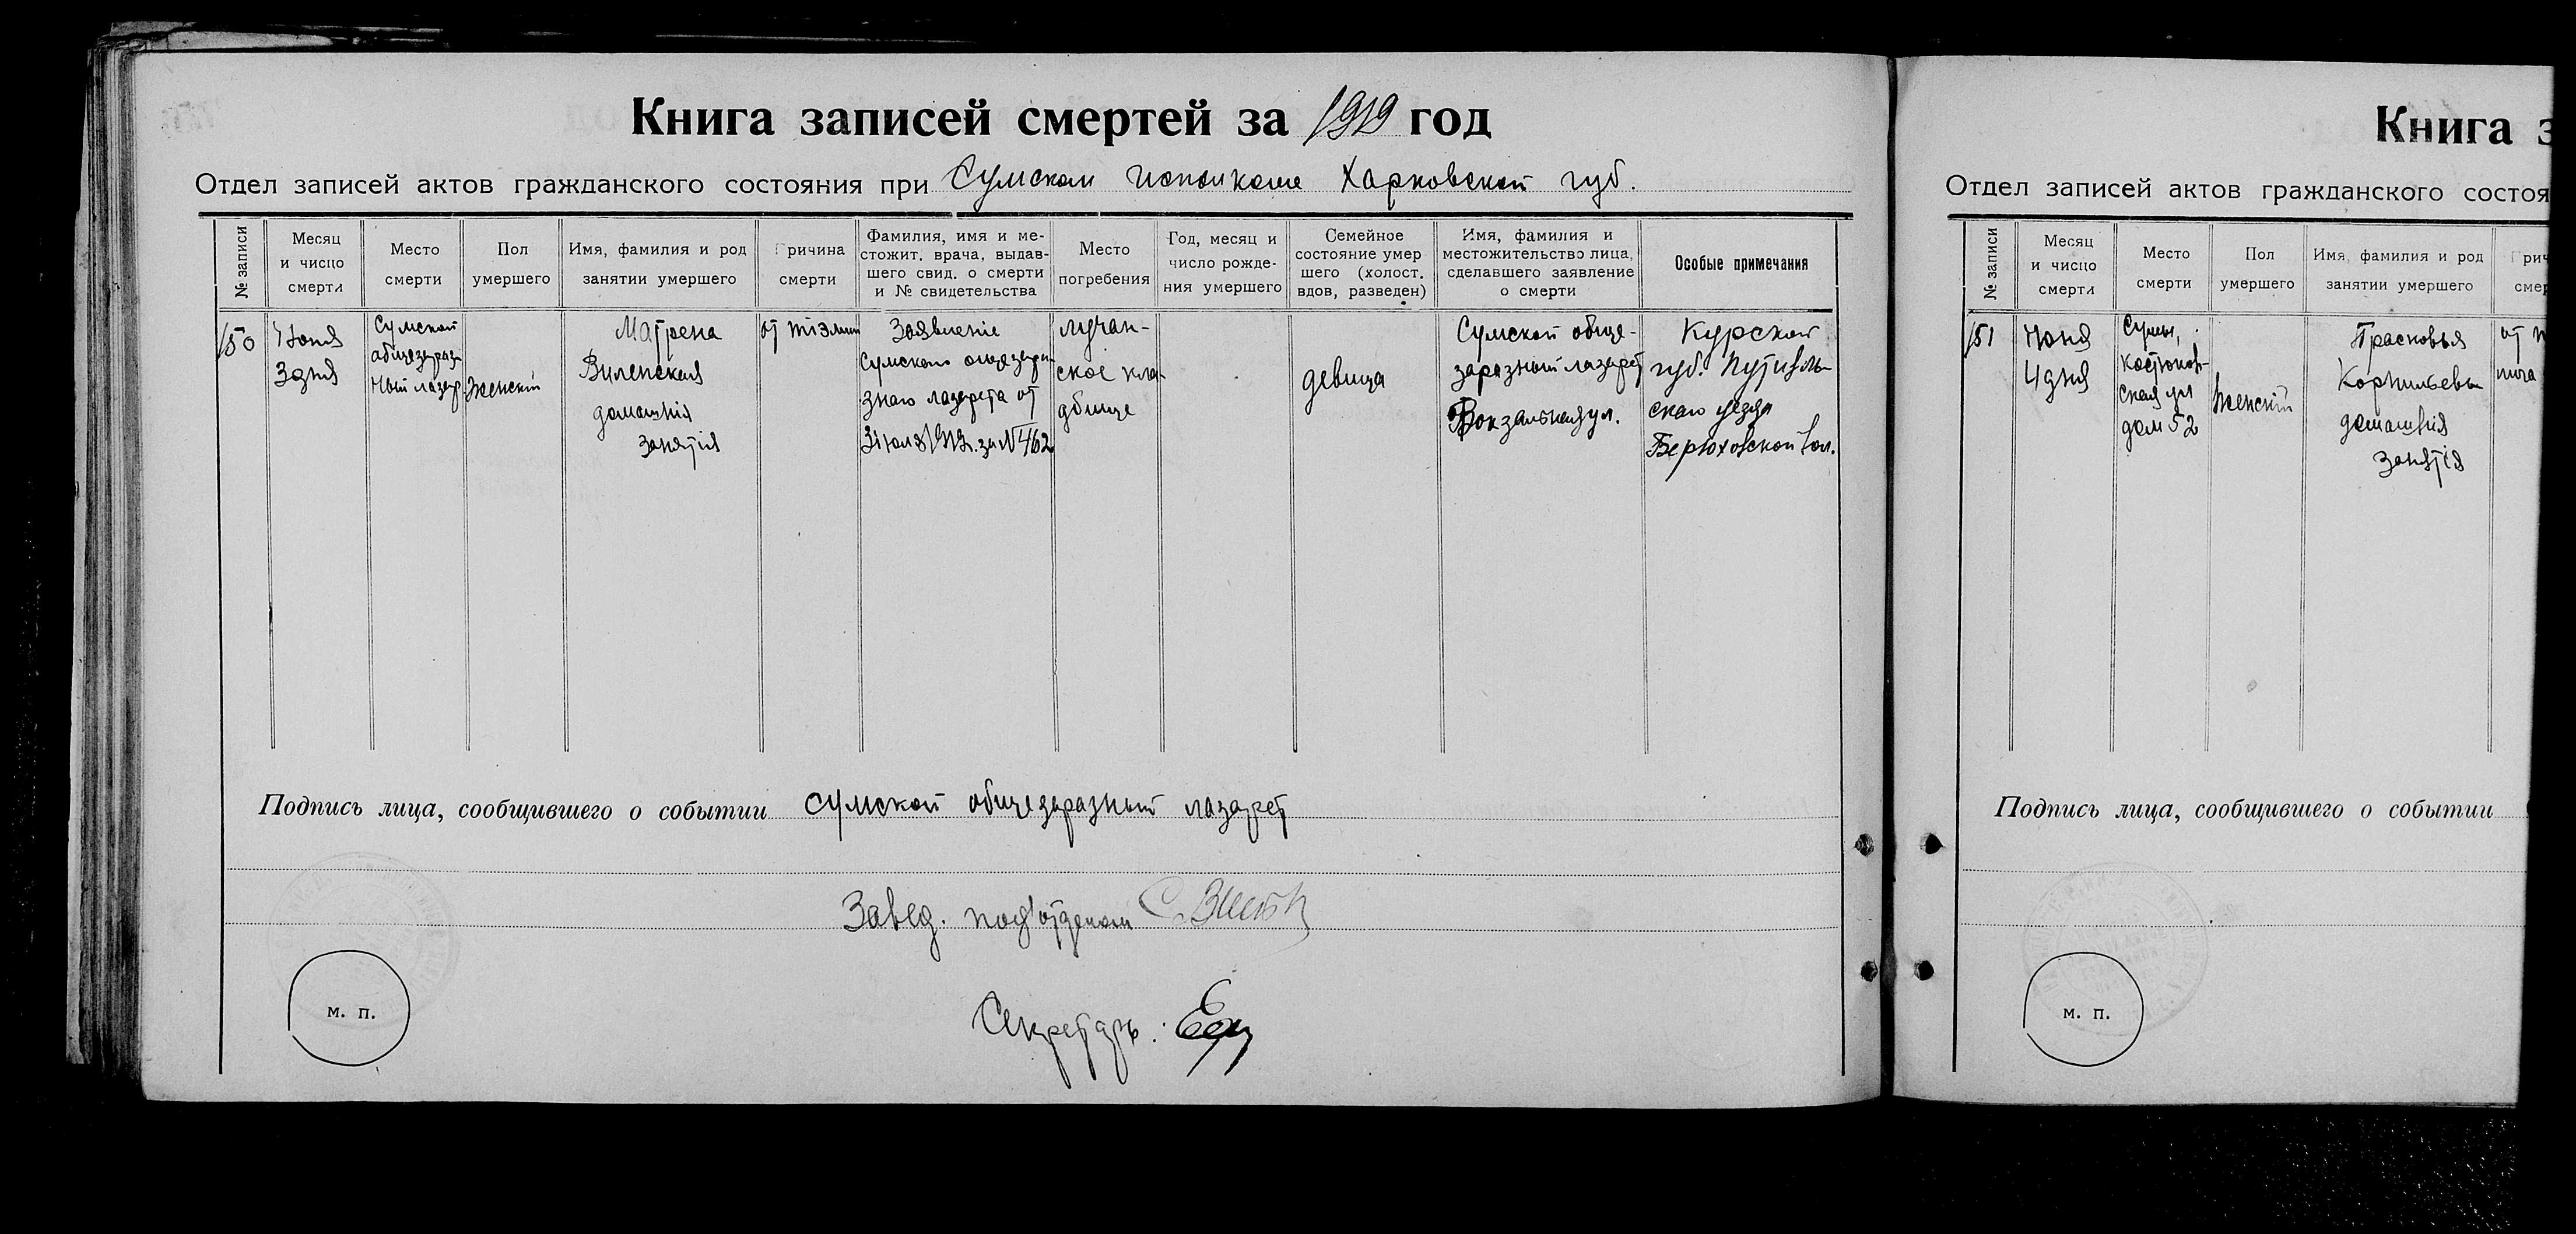 Книга записей смертей за 1919 год
Отдел записей актов гражданского состояния при Сумском исполкоме Харковской губ.
№ записи
Месяц
и число
смерти
Место
смерти
Пол
умершего
Имя, фамилия и род
занятии умершего
Причина
смерти
Фамилия, имя и ме-
стожит. врача, выдав-
шего свид. о смерти
и № свидетельства
Место
погребения
Год, месяц и
число рожде-
ния умершего
Семейное
состояние умер
шего (холост.
вдов, разведен)
Имя, фамилия и
местожительство лица,
сделавшего заявление
о смерти
Особые примечания
150
Июня
3 дня
Сумской
общезараз-
ный лазар.
Женскій
Матрена
Виленская
домашнія
занятія
от
Заявленіе
Сумского общезара-
знаго лазарета от
за № 462
лучан-
ское кла-
дбище
девица
Сумской обще-
заразный лазарет
Вокзальная ул.
Курской
губ. Путивль-
скаго уезда
Берюховской вол.
Подпись лица, сообщившего о событии Сумской общезаразный лазарет
Завед. подотделом
Секретарь
м. п.
Книга з
Отдел записей актов гражданского состоя
№ записи
Месяц
и число
смерти
Место
смерти
Пол
умершего
Имя, фамилия и род
занятии умершего
Прич
смер
151
Июня
4 дня
Сумы,
Костюков-
ская ул
дом 52
Женскій
Прасковья
Корнильева
домашнія
занятія
от
Подпись лица, сообщившего о событии
м. п.